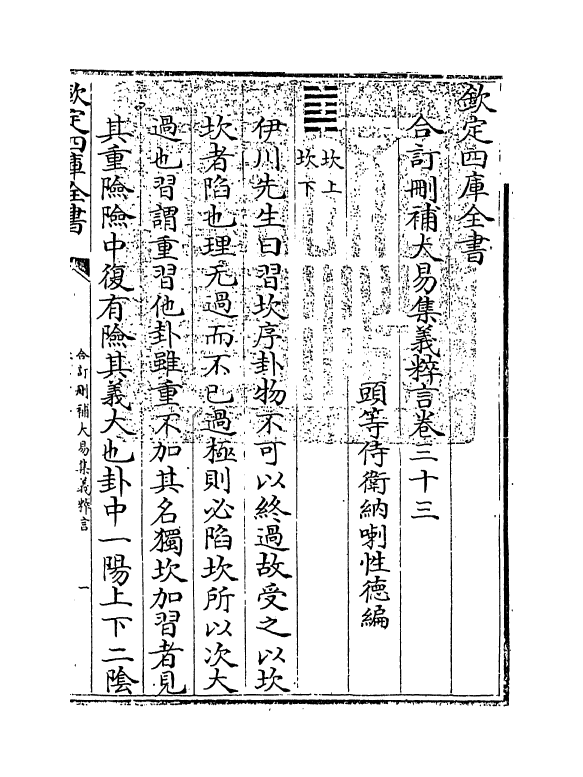 欽定四庫全書
合訂刪補大易集義粹言卷三十三
頭等侍衛納喇性德編
坎上
坎下
伊川先生曰習坎序卦物不可以終過故受之以坎
坎者陷也理无過而不已過極則必陷坎所以次大
過也習謂重習他卦雖重不加其名獨坎加習者見
其重險險中復有險其義大也卦中一陽上下二陰
欽定四庫全書
合訂刪補大易集義粹言
一